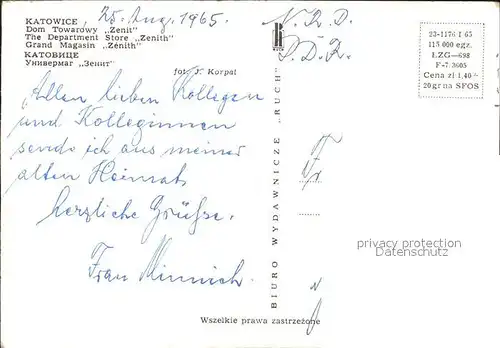 KATOWICE, 25. Aug. 1965.
Dom Towarowy „Zenit"
The Department Store „Zenith"
Grand Magasin „Zénith"
КАТОВИЦЕ
Универмаг „Зенит"
fot. J. Korpal
Allen lieben Kollegen
und Kolleginnen
sende ich aus meiner
alten Heimat
herzliche Grüsse.
Frau Minnich.
BIURO WYDAWNICZE „RUCH"
N.R.D.
D.D.R.
Fr
23-1176 I 65
115 000 egz.
LZG—698
F-7 3605
Cena zł 1,40
20 gr na SFOS
privacy protection
Datenschutz
Wszelkie prawa zastrzeżone